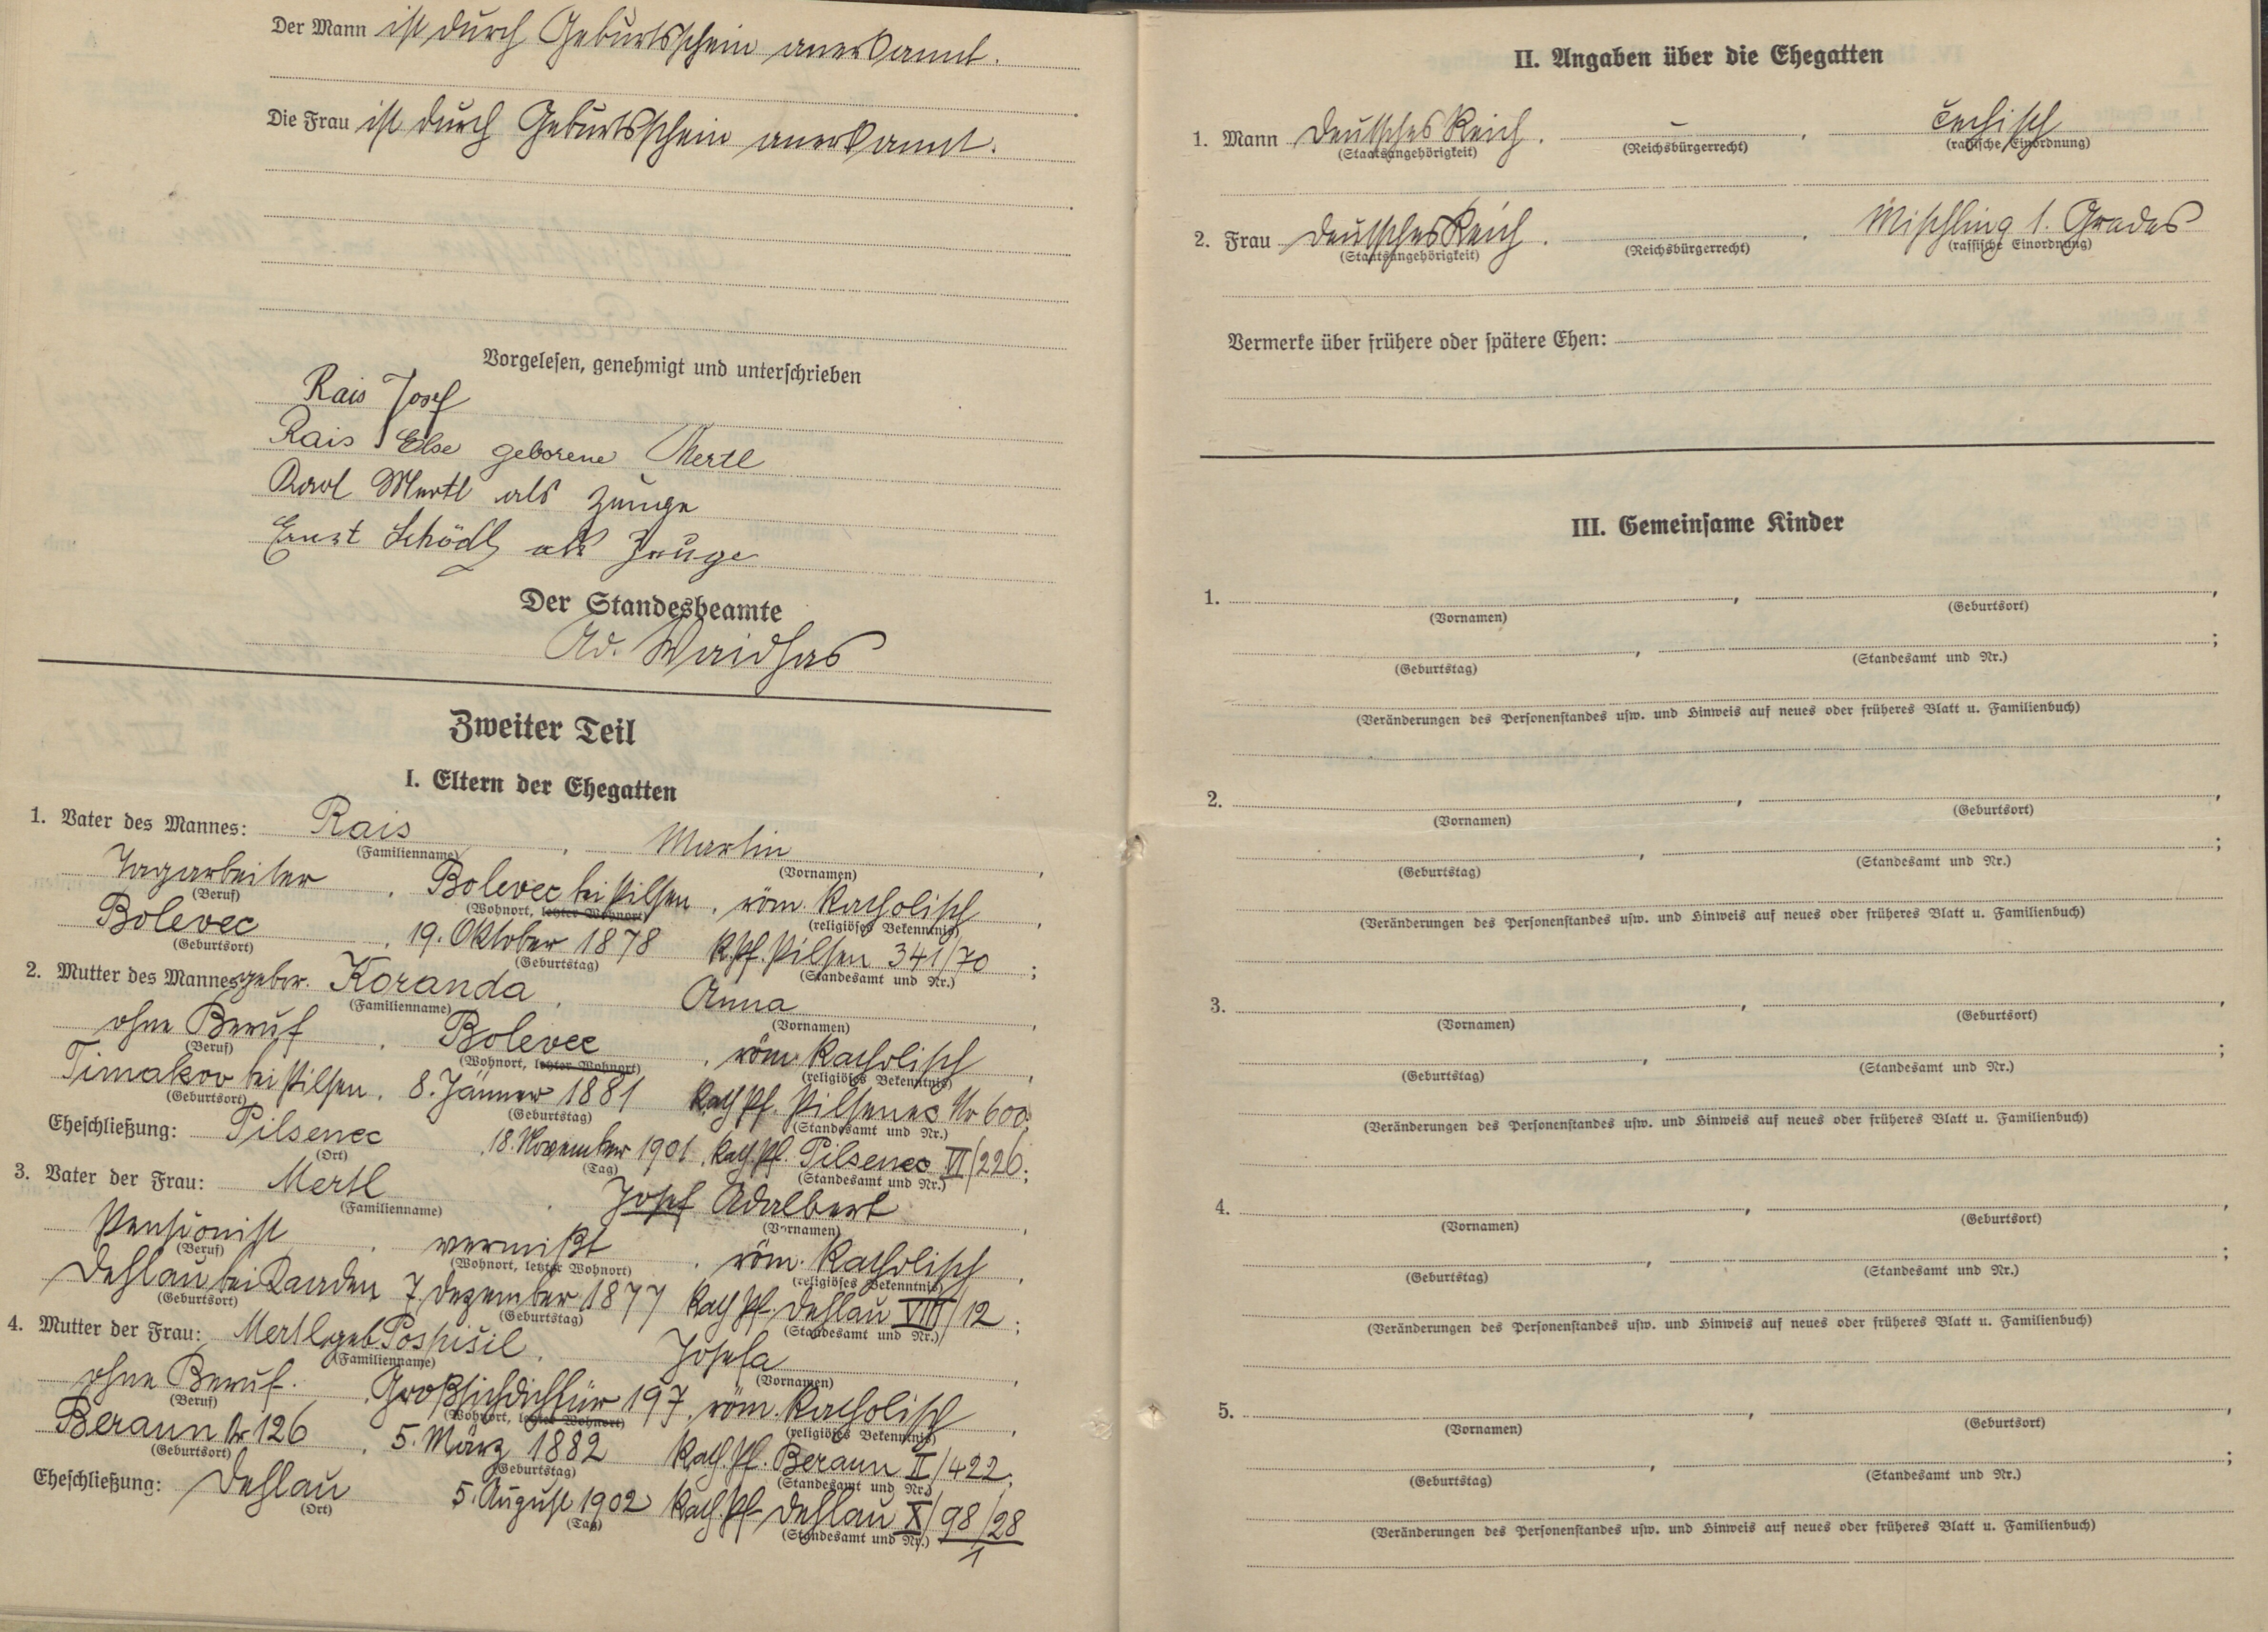 Der Mann ist durch Geburtsschein anerkannt.
Die Frau ist durch Geburtsschein anerkannt.
Vorgelesen, genehmigt und unterschrieben
Rais Josef
Rais Else geborene Mertl
Karl Mertl als Zeuge
Ernst Schödl als Zeuge
Der Standesbeamte
Ad. Waidhas
Zweiter Teil
I. Eltern der Ehegatten
1. Vater des Mannes: Rais, Martin
(Familienname) (Vornamen)
Tagarbeiter, Bolevec bei Pilsen, röm. katholisch
(Beruf) (Wohnort, letzter Wohnort) (religiöses Bekenntnis)
Bolevec, 19. Oktober 1878 k. Pf. Pilsen 341/70;
(Geburtsort) (Geburtstag) (Standesamt und Nr.)
2. Mutter des Mannes gebor. Koranda, Anna
(Familienname) (Vornamen)
ohne Beruf, Bolevec, röm. katholisch
(Beruf) (Wohnort, letzter Wohnort) (religiöses Bekenntnis)
Timakov bei Pilsen, 8. Jänner 1881 kath Pf. Pilsenec Nr 600;
(Geburtsort) (Geburtstag) (Standesamt und Nr.)
Eheschließung: Pilsenec, 18. November 1901, kath. Pf. Pilsenec VI/226;
(Ort) (Tag) (Standesamt und Nr.)
3. Vater der Frau: Mertl, Josef Adalbert
(Familienname) (Vornamen)
Pensionist, vermißt, röm. katholisch
(Beruf) (Wohnort, letzter Wohnort) (religiöses Bekenntnis)
Dehlau bei Kaaden 7. Dezember 1877 kath Pf. Dehlau VIII/12;
(Geburtsort) (Geburtstag) (Standesamt und Nr.)
4. Mutter der Frau: Mertl, geb. Pospišil, Josefa
(Familienname) (Vornamen)
ohne Beruf, Großsichdichfür 197, röm. katholisch
(Beruf) (Wohnort, letzter Wohnort) (religiöses Bekenntnis)
Beraun Nr 126, 5. März 1882 kath. Pf. Beraun II/422;
(Geburtsort) (Geburtstag) (Standesamt und Nr.)
Eheschließung: Dehlau 5. August 1902 kath. Pf. Dehlau X/98/28
(Ort) (Tag) (Standesamt und Nr.) 1
II. Angaben über die Ehegatten
1. Mann Deutsches Reich. –, čechisch
(Staatsangehörigkeit) (Reichsbürgerrecht) (rassische Einordnung)
2. Frau Deutsches Reich. Mischling 1. Grades
(Staatsangehörigkeit) (Reichsbürgerrecht) (rassische Einordnung)
Vermerke über frühere oder spätere Ehen:
III. Gemeinsame Kinder
1. , ,
(Vornamen) (Geburtsort)
, ;
(Geburtstag) (Standesamt und Nr.)
(Veränderungen des Personenstandes usw. und Hinweis auf neues oder früheres Blatt u. Familienbuch)
2. , ,
(Vornamen) (Geburtsort)
, ;
(Geburtstag) (Standesamt und Nr.)
(Veränderungen des Personenstandes usw. und Hinweis auf neues oder früheres Blatt u. Familienbuch)
3. , ,
(Vornamen) (Geburtsort)
, ;
(Geburtstag) (Standesamt und Nr.)
(Veränderungen des Personenstandes usw. und Hinweis auf neues oder früheres Blatt u. Familienbuch)
4. , ,
(Vornamen) (Geburtsort)
, ;
(Geburtstag) (Standesamt und Nr.)
(Veränderungen des Personenstandes usw. und Hinweis auf neues oder früheres Blatt u. Familienbuch)
5. , ,
(Vornamen) (Geburtsort)
, ;
(Geburtstag) (Standesamt und Nr.)
(Veränderungen des Personenstandes usw. und Hinweis auf neues oder früheres Blatt u. Familienbuch)